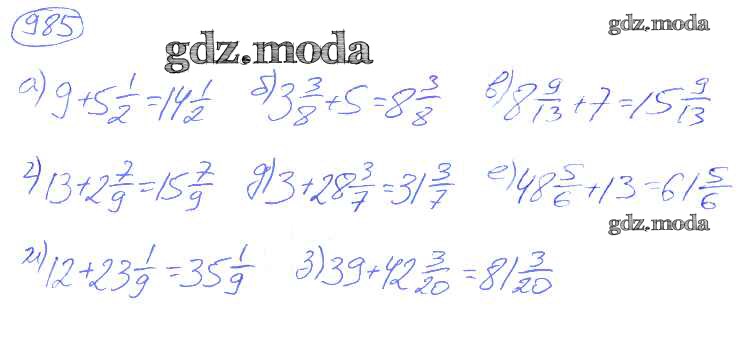 985
gdz.moda
gdz.moda
а) 9 + 5 1/2 = 14 1/2  б) 3 3/8 + 5 = 8 3/8  в) 8 9/13 + 7 = 15 9/13
г) 13 + 2 7/9 = 15 7/9  д) 3 + 28 3/7 = 31 3/7  е) 48 5/6 + 13 = 61 5/6
gdz.moda
ж) 12 + 23 1/9 = 35 1/9  з) 39 + 42 3/20 = 81 3/20